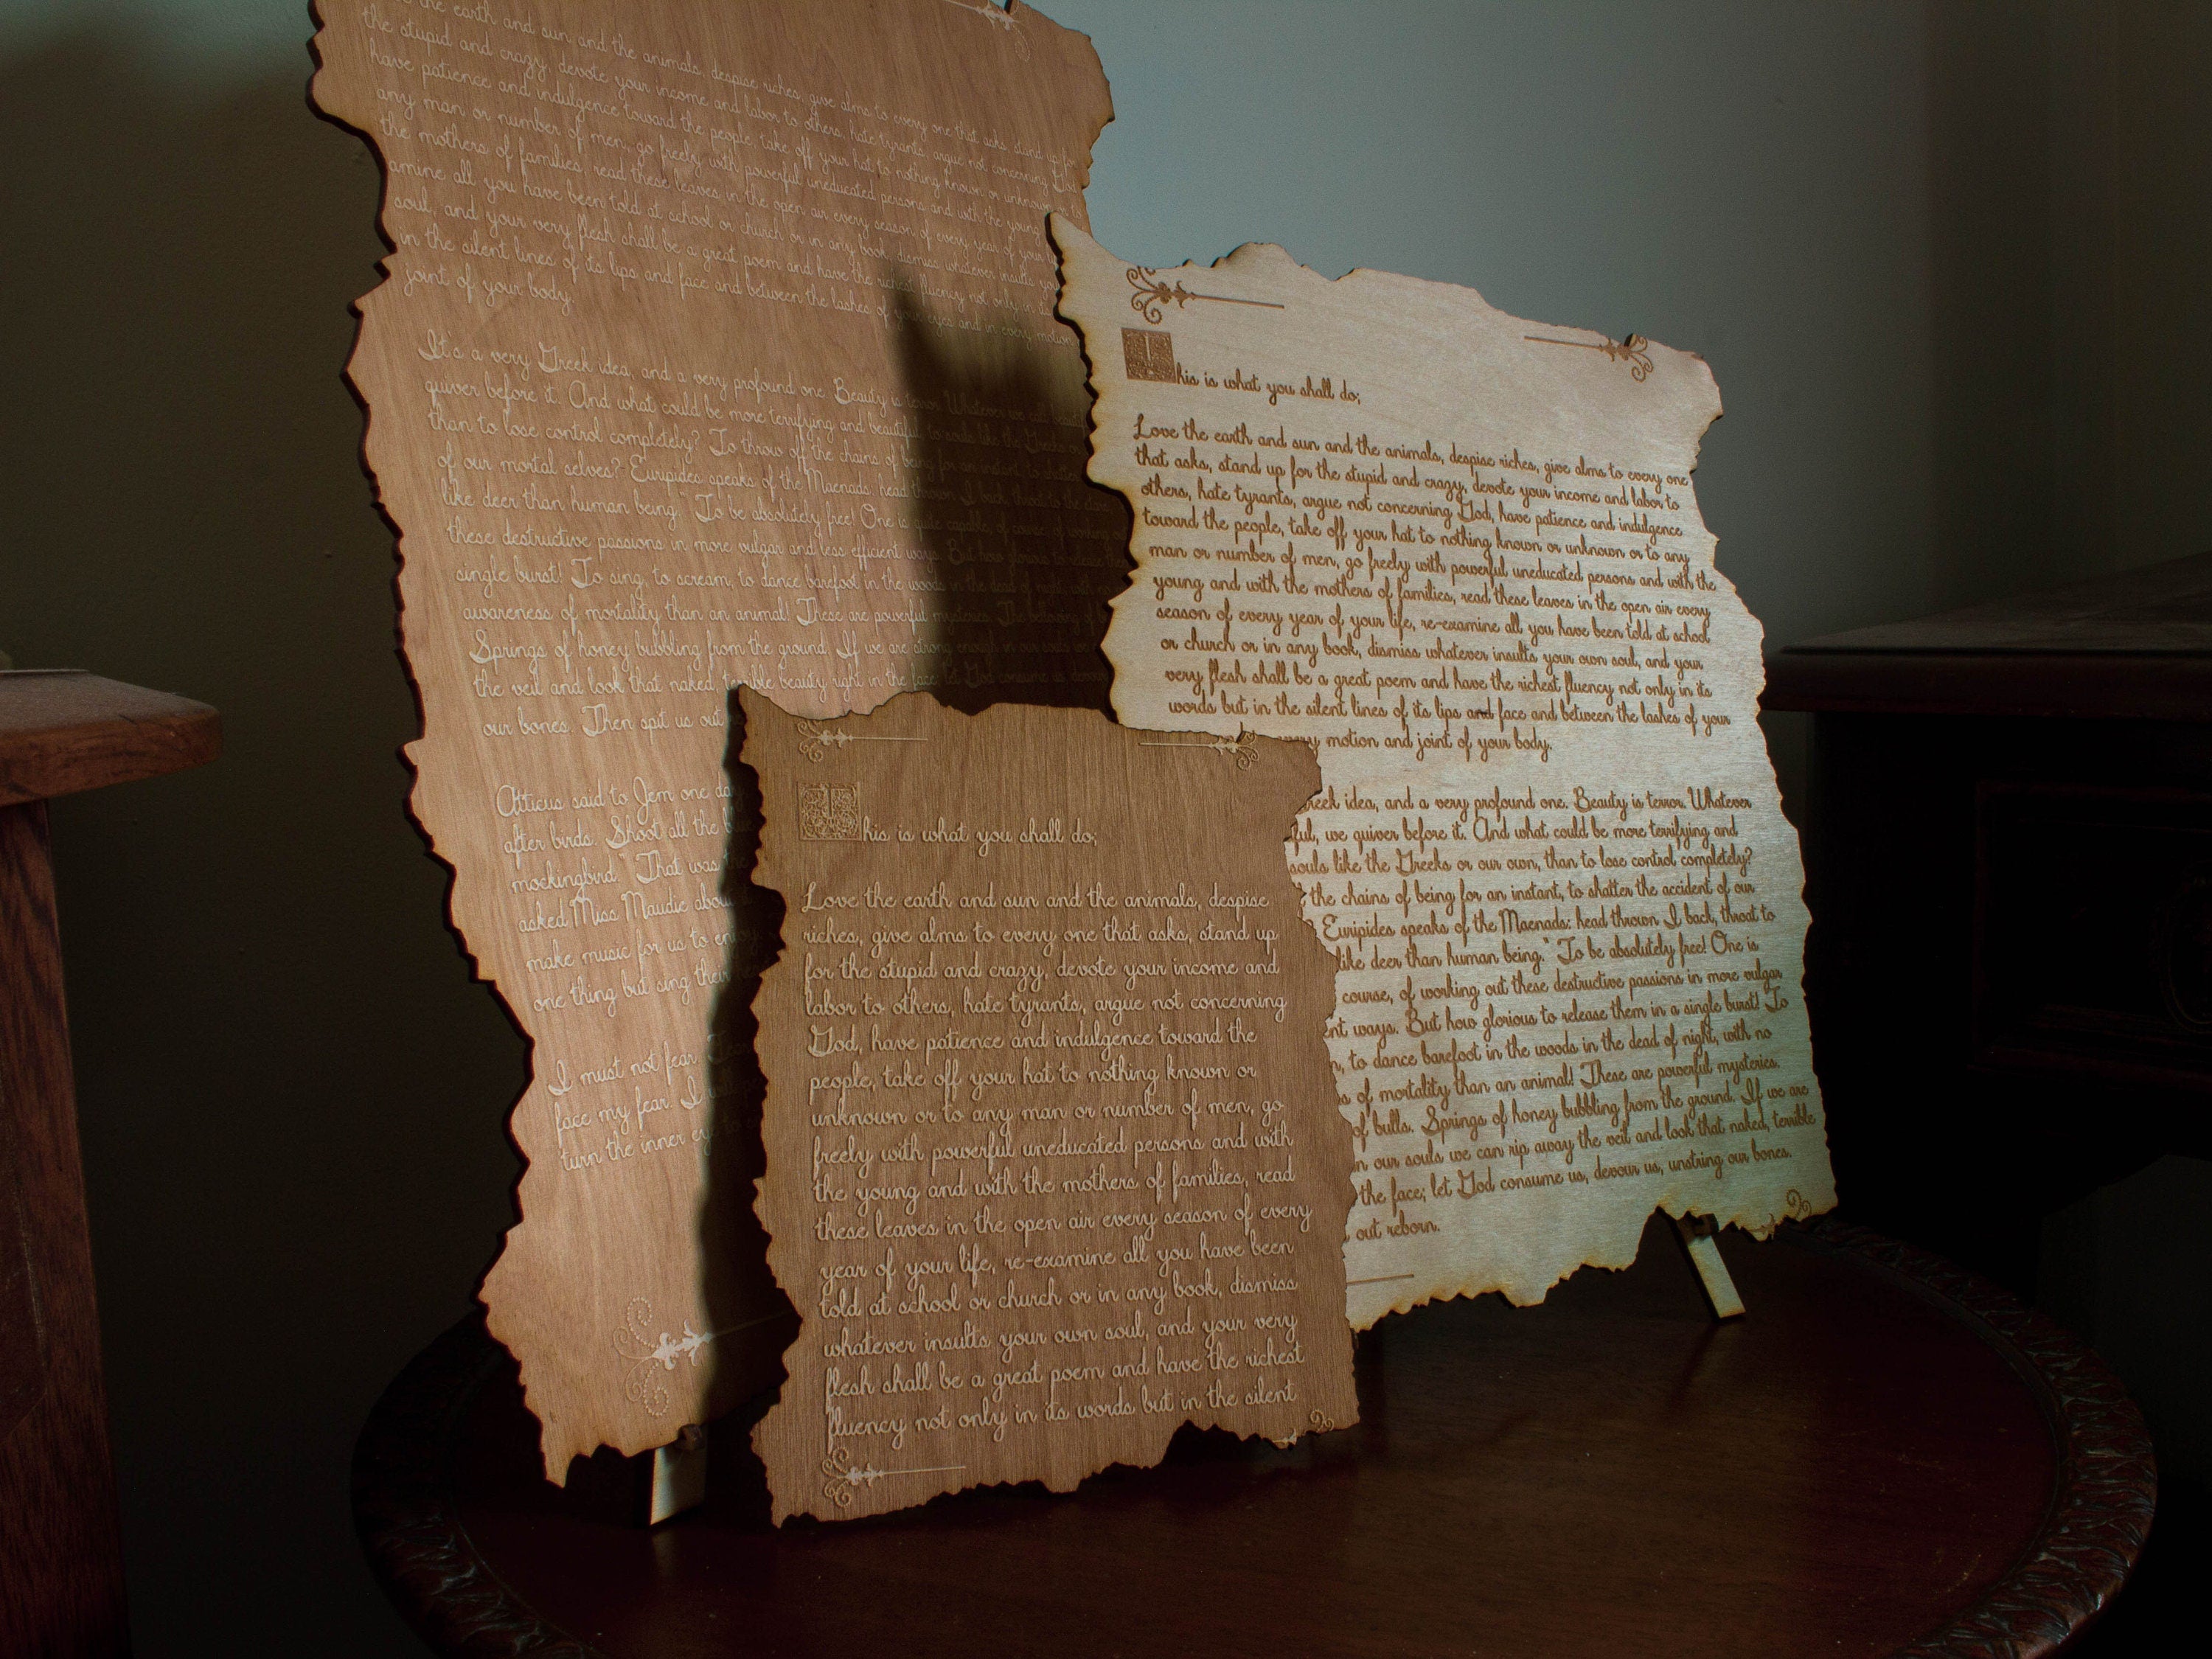 the earth and sun and the animals, despise riches, give alms to every one that asks, stand up for
the stupid and crazy, devote your income and labor to others, hate tyrants, argue not concerning God,
have patience and indulgence toward the people, take off your hat to nothing known or unknown or to
any man or number of men, go freely with powerful uneducated persons and with the young
the mothers of families, read these leaves in the open air every season of every year of your
amine all you have been told at school or church or in any book, dismiss whatever insults
soul, and your very flesh shall be a great poem and have the richest fluency not only in
in the silent lines of its lips and face and between the lashes of your eyes and in every motion
joint of your body.
It's a very Greek idea, and a very profound one. Beauty is terror. Whatever we call
quiver before it. And what could be more terrifying and beautiful, to souls like the Greeks or
than to lose control completely? To throw off the chains of being for an instant, to shatter
of our mortal selves? Euripides speaks of the Maenads: head thrown I back, throat to the stars,
like deer than human being." To be absolutely free! One is quite capable, of course, of working
these destructive passions in more vulgar and less efficient ways. But how glorious to release them
single burst! To sing, to scream, to dance barefoot in the woods in the dead of night, with no
awareness of mortality than an animal! These are powerful mysteries. The bellowing of
Springs of honey bubbling from the ground. If we are strong enough in our souls we
the veil and look that naked, terrible beauty right in the face; let God consume us, devour
our bones. Then spit us out
Atticus said to Jem one da
after birds. Shoot all the b
mockingbird." That was the
asked Miss Maudie abou
make music for us to enjoy
one thing but sing their
I must not fear.
face my fear. I
turn the inner eye
This is what you shall do;
Love the earth and sun and the animals, despise riches, give alms to every one
that asks, stand up for the stupid and crazy, devote your income and labor to
others, hate tyrants, argue not concerning God, have patience and indulgence
toward the people, take off your hat to nothing known or unknown or to any
man or number of men, go freely with powerful uneducated persons and with the
young and with the mothers of families, read these leaves in the open air every
season of every year of your life, re-examine all you have been told at school
or church or in any book, dismiss whatever insults your own soul, and your
very flesh shall be a great poem and have the richest fluency not only in its
words but in the silent lines of its lips and face and between the lashes of your
every motion and joint of your body.
Greek idea, and a very profound one. Beauty is terror. Whatever
ful, we quiver before it. And what could be more terrifying and
souls like the Greeks or our own, than to lose control completely?
the chains of being for an instant, to shatter the accident of our
Euripides speaks of the Maenads: head thrown I back, throat to
like deer than human being." To be absolutely free! One is
course, of working out these destructive passions in more vulgar
ent ways. But how glorious to release them in a single burst! To
to dance barefoot in the woods in the dead of night, with no
of mortality than an animal! These are powerful mysteries.
of bulls. Springs of honey bubbling from the ground. If we are
in our souls we can rip away the veil and look that naked, terrible
the face; let God consume us, devour us, unstring our bones.
out reborn.
This is what you shall do;
Love the earth and sun and the animals, despise
riches, give alms to every one that asks, stand up
for the stupid and crazy, devote your income and
labor to others, hate tyrants, argue not concerning
God, have patience and indulgence toward the
people, take off your hat to nothing known or
unknown or to any man or number of men, go
freely with powerful uneducated persons and with
the young and with the mothers of families, read
these leaves in the open air every season of every
year of your life, re-examine all you have been
told at school or church or in any book, dismiss
whatever insults your own soul, and your very
flesh shall be a great poem and have the richest
fluency not only in its words but in the silent